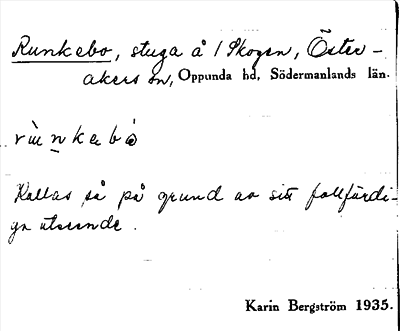 Runkebo, stuga å /Skogen, Öster-
åkers sn, Oppunda hd, Södermanlands län.
rùnkebò
Kallas så på grund av sitt fallfärdi-
ga utseende.
Karin Bergström 1935.